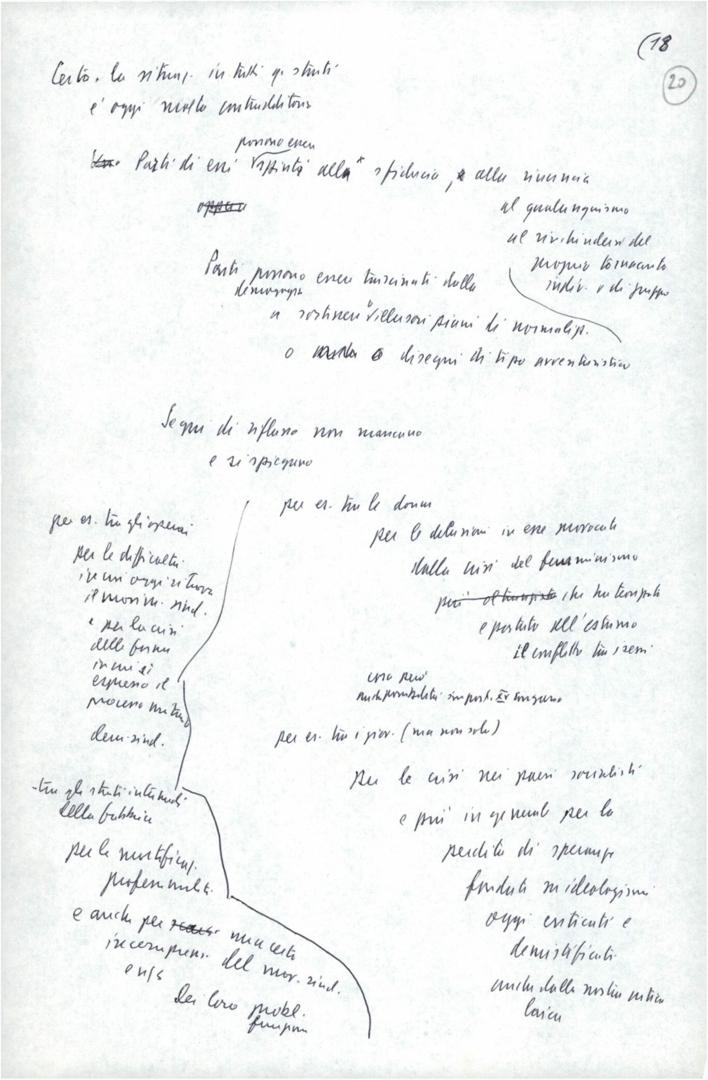 (18
20
Certo, la situaz. in tutti qs strati
è oggi molto contraddittoria
possono essere
Parti di essi alla sfiducia, alla rinuncia
al qualunquismo
al rinchiudersi nel
proprio tornaconto
indiv. o di gruppo
Parti possono essere trascinati dalla
demagogia
a sostenere illusori piani di normaliz.
o disegni di tipo avventuristico
Segni di riflusso non mancano
e si spiegano
per es. tra gli operai
per le difficoltà
in cui oggi si trova
il movim. sind.
e per la crisi
delle forme
in cui si
espresso il
processo unitario
dem. sind.
tra gli strati intermedi
della fabbrica
per la mortificaz.
professionalità
e anche per una certa
incomprens. del mov. sind.
dei loro probl.
per es. tra le donne
per le delusioni in esse provocate
dalla crisi del femminismo
che ha
e portato all'estremo
il conflitto tra i sessi
per es. tra i giov. (ma non solo)
per la crisi nei paesi socialisti
e più in generale per la
perdita di speranze
fondate su ideologismi
oggi criticati e
demistificati
anche dalla nostra critica
laica